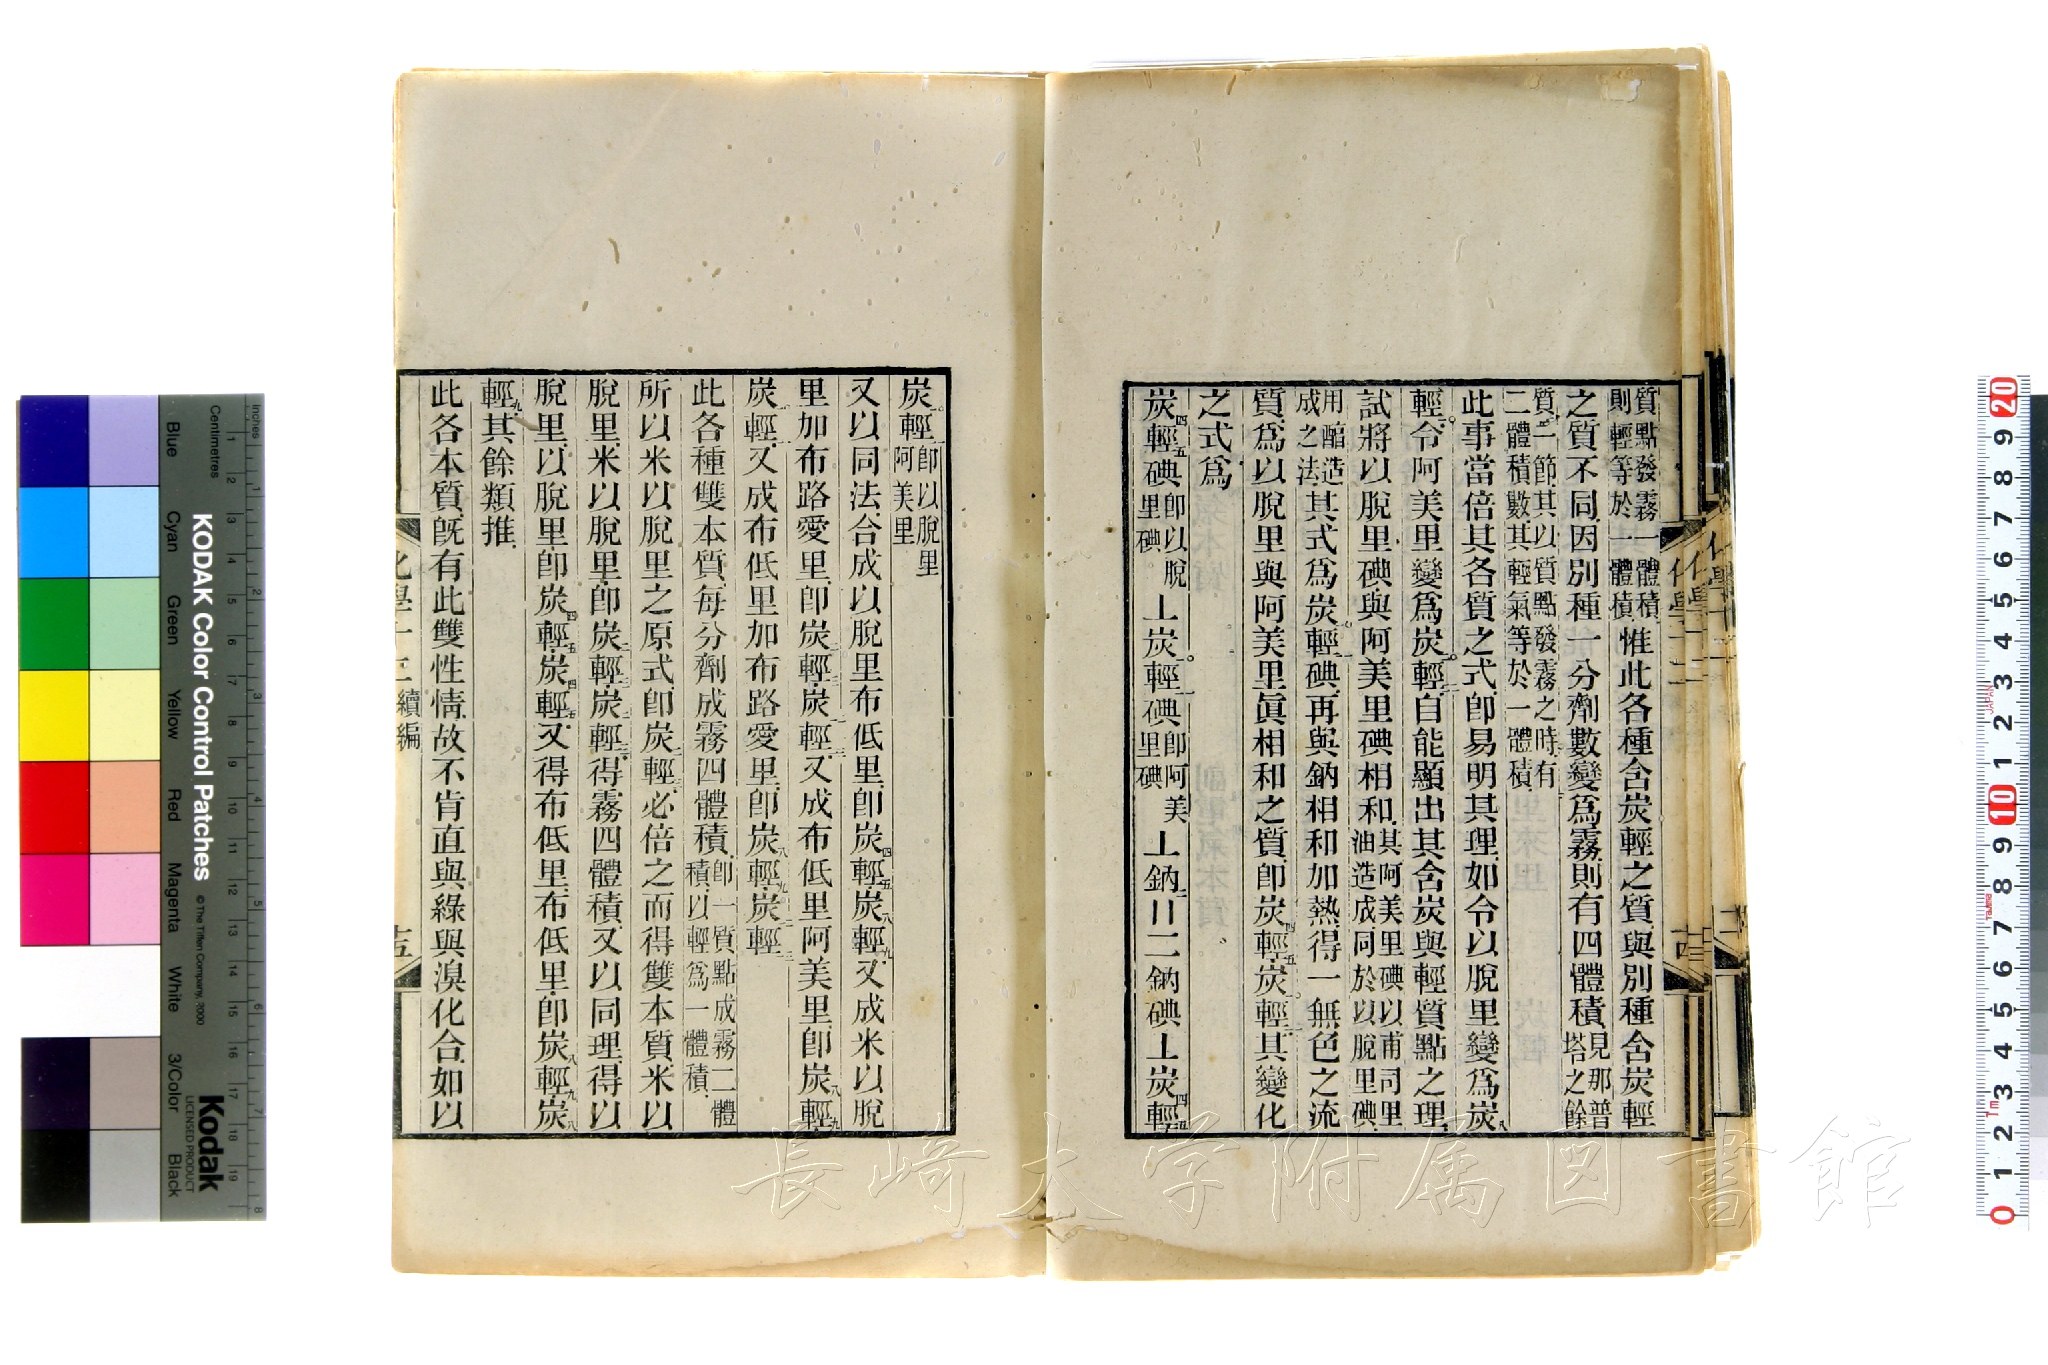 質點發霧一體積
則輕等於一體積惟此各種含炭輕之質與別種含炭輕
之質不同因別種一分劑數變爲霧則有四體積見那普
塔之餘
質二節其以質點發霧之時有
二體積數其輕氣等於一體積
此事當倍其各質之式卽易明其理如令以脫里變爲炭八
輕令阿美里變爲炭輕自能顯出其含炭與輕質點之理
試將以脫里碘與阿美里碘相和其阿美里碘以甫司里
油造成同於以脫里碘
用醋造
成之法其式爲炭輕碘再與鈉相和加熱得一無色之流
質爲以脫里與阿美里眞相和之質卽炭四輕五炭輕其變化
之式爲
炭四輕五碘卽以脫
里碘⊥炭輕碘卽阿美
里碘⊥鈉二〢二鈉碘⊥炭四輕五
炭輕卽以脫里
阿美里
又以同法合成以脫里布低里卽炭四輕五炭八輕九又成米以脫
里加布路愛里卽炭輕炭輕又成布低里阿美里卽炭八輕九
炭輕又成布低里加布路愛里卽炭八輕九炭輕
此各種雙本質每分劑成霧四體積卽一質點成霧二體
積以輕爲一體積
所以米以脫里之原式卽炭輕必倍之而得雙本質米以
脫里米以脫里卽炭輕炭輕得霧四體積又以同理得以
脫里以脫里卽炭四輕五炭四輕五又得布低里布低里卽炭八輕九炭八
輕九其餘類推
此各本質旣有此雙性情故不肯直與綠與溴化合如以
化學十二
化學十二
西
化學十二續編
十五
KODAK Color Control Patches
© The Tiffen Company, 2000
Kodak
LICENSED PRODUCT
Inches
Centimetres
Blue
Cyan
Green
Yellow
Red
Magenta
White
3/Color
Black
長崎大学附属図書館